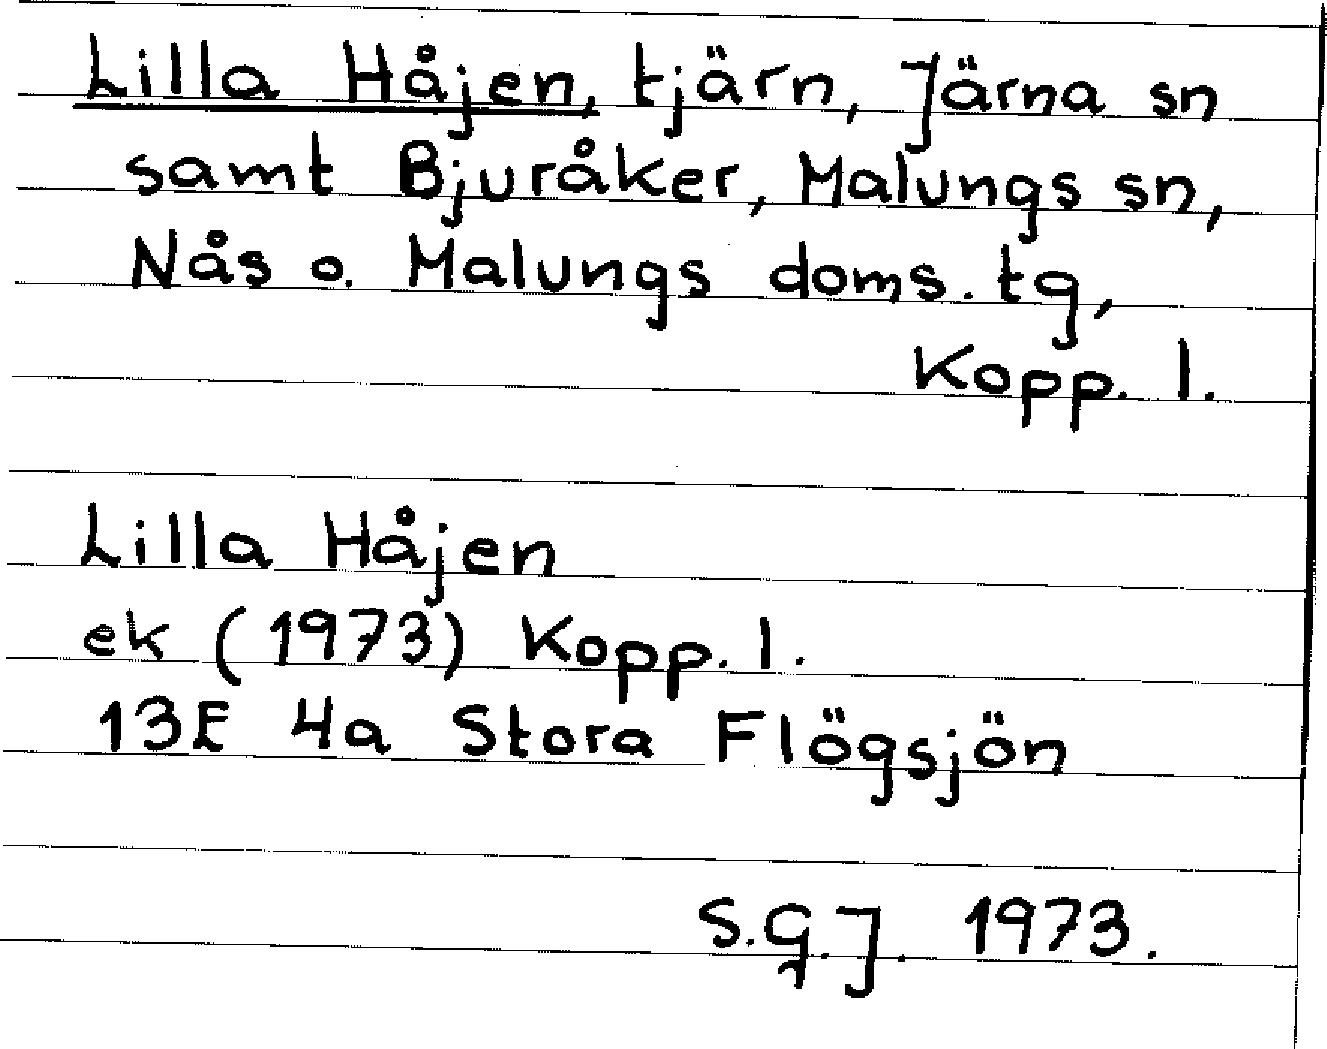 Lilla Håjen, tjärn, Järna sn
samt Bjuråker, Malungs sn,
Nås o. Malungs doms. tg,
Kopp. l.
Lilla Håjen
ek (1973) Kopp. l.
13E 4a Stora Flögsjön
S.G.J. 1973.